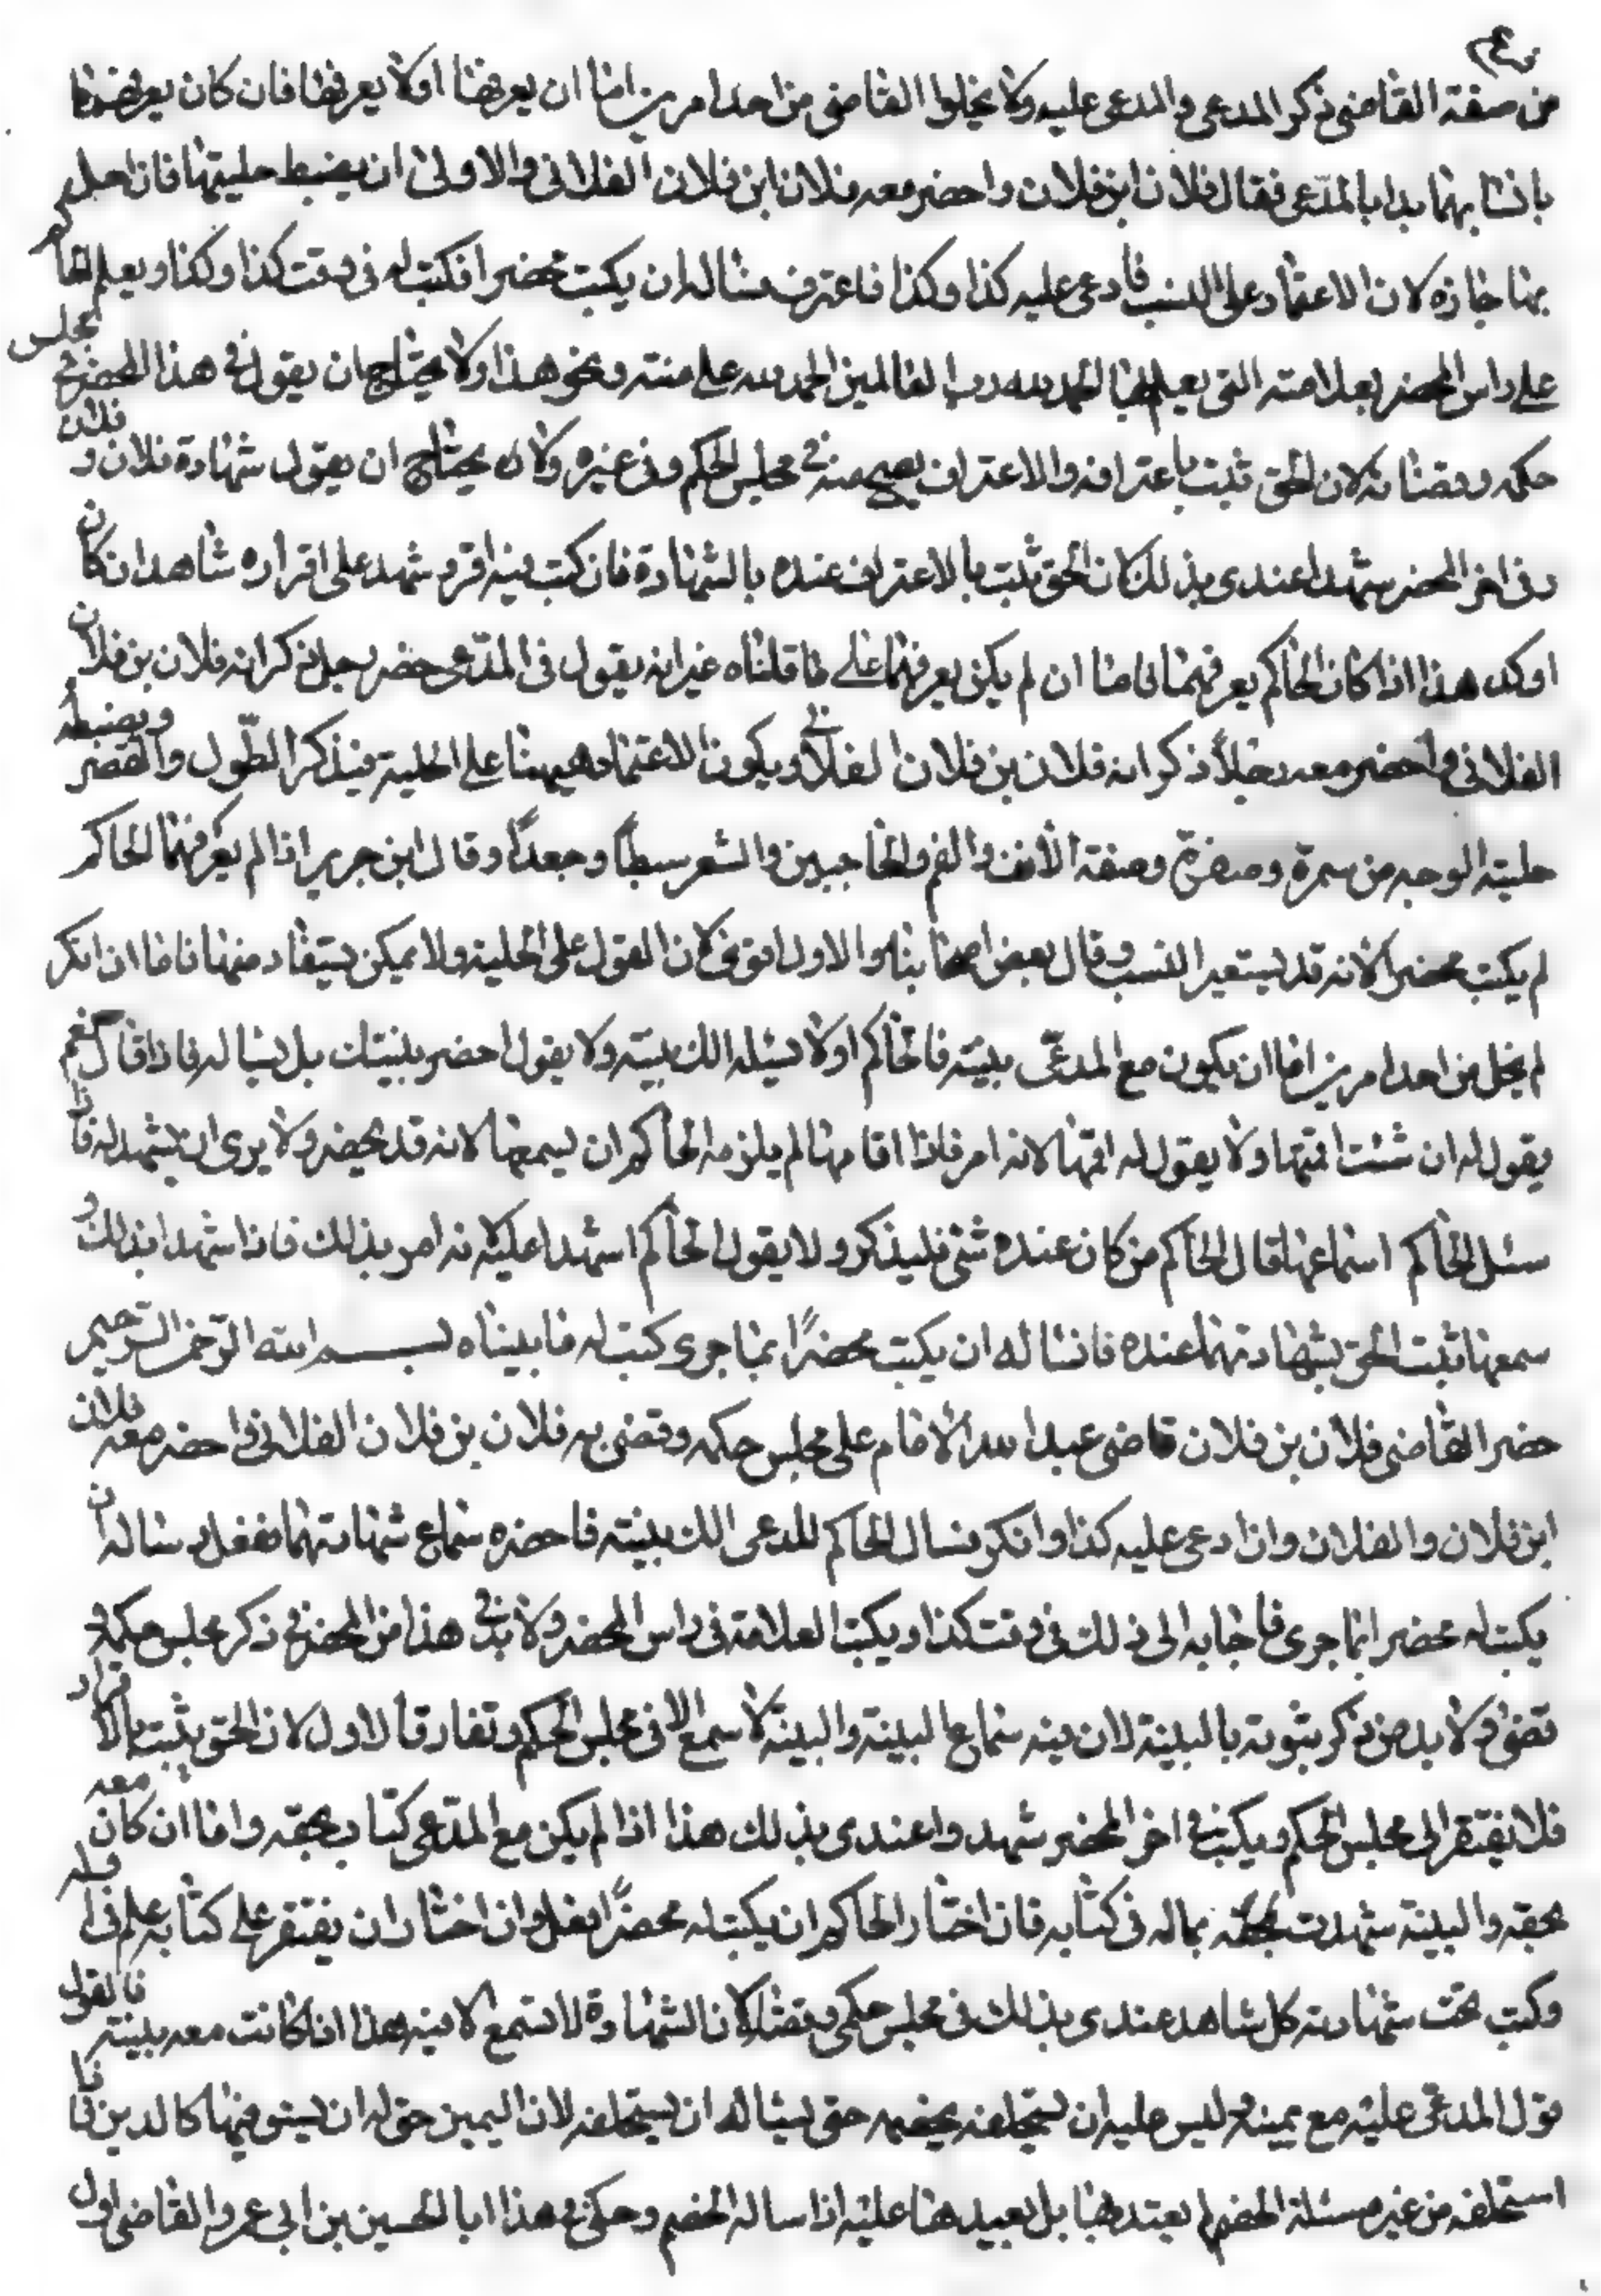 من صفة القاضى ذكر المدعى والمدعى عليه ولا يخلوا القاضى من احد امرين اما ان يعرفهما اولا يعرفهما فان كان يعرفهما
بانسابهما بدا بالمدّعى فقال فلان ابن فلان واحضر معه فلان ابن فلان الفلانى والاولى ان يضبط حليتهما فان اخل
بها جاز لان الاعتماد على النسب فادعى عليه كذا وكذا فاعترف فساله ان يكتب محضرا فكتب له فى وقت كذا وكذا ويعلم القاضى
على راس المحضر بعلامته التى يعلم بها الحمد لله رب العالمين الحمد لله على منته ونحو هذا ولا يحتاج ان يقول فى هذا المحضر فى مجلس
حكمه وقضائه لان الحق ثبت باعترافه والاعتراف يصح منه فى مجلس الحكم وفى غيره ولا يحتاج ان يقول شهادة فلان و فلان
وفى اخر المحضر شهدا عندى بذلك لان الحق ثبت بالاعتراف عنده بالشهادة فان كتب فيه اقر وشهد على اقراره شاهدان كان
اوكد هذا اذا كان الحاكم يعرفهما فاما ان لم يكن يعرفهما على ما قلناه غير انه يقول فى المدّعى حضر رجل ذكر انه فلان بن فلان
الفلانى واحضر معه رجلاً ذكر انه فلان بن فلان الفلانى ويكون الاعتماد هيهنا على الحلية فيذكر الطّول والقصر ويضبط
حلية الوجه من سمرة وصفرة وصفة الانف والفم والحاجبين والشعر سبطاً وجعداً وقال ابن جرير اذا لم يعرفهما الحاكم
لم يكتب محضرا لانه قد يستعير النسب وقال بعض اصحابنا والاول اقوى لان القول على الحلية ولا يمكن يستفاد منها فاما ان انكر
لم يخل من احد امرين اما ان يكون مع المدعّى بينة فالحاكم اولا يسئله الك بينة ولا يقول احضر بينتك بل يساله فاذا قال نعم
يقول له ان شئت اقمتها ولا يقول له اقمها لانه امر فاذا اقامها لم يلزمه الحاكم ان يسمعها لانه قد يحضر ولا يرى ان يشهد له فاذا
سئل الحاكم استماعها قال الحاكم من كان عنده شئ فليذكر ولا يقول الحاكم اشهدا عليه لانه امر بذلك فاذا شهدا بذلك و
سمعها ثبت الحق بشهادتهما عنده فان ساله ان يكتب محضرًا بما جرى كتب له ما بيناه بسم الله الرّحمن الرّحيم
حضر القاضى فلان بن فلان قاضى عبد الله الامام على مجلس حكمه وقضى به فلان بن فلان الفلانى واحضر معه فلان
ابن فلان والفلان واذ ادعى عليه كذا وانكر فسال الحاكم للمدعى الك بينة فاحضره سماع شهادتهما ففعل وساله ان
يكتب له محضرا بما جرى فاجابه الى ذلك فى وقت كذا ويكتب العلامة فى راس المحضر ولا بد فى هذا من المحضر فى ذكر مجلس حكمه و
قضى ولا بد من ذكر ثبوته بالبينة لان فيه سماع البينة والبينة لا سمع الا فى مجلس الحكم وتفارق الاول لان الحق يثبت بالاقرار
فلا يفتقر الى مجلس الحكم ويكتب فى اخر المحضر شهدوا عندى بذلك هذا اذا لم يكن مع المدّعى كتاب بحقه واما ان كان معه
بحقه والبينة شهدت بحقّه بماله فى كتابه فان اختار الحاكم ان يكتب له محضرًا فعل وان اختار ان يفتقر على كتابه علم فى اوله
وكتب تحت شهادته كل شاهد عندى بذلك فى مجلس حكمى وقضائى لان الشهادة لا تسمع الا فيه هذا اذا كانت معه بينة فالقول
قول المدعى عليه مع يمينه وليس عليه ان يستحلفه بخصمه حتى يساله ان يستحلفه لان اليمين حق له ان يستوفيها كالدين فا
استحلفه من غير مسئلة الخصم لم يعتد بها بل يعيدها عليه اذا ساله الخصم وحكى فى هذا ابا الحسين بن ابى عمر والقاضى اول